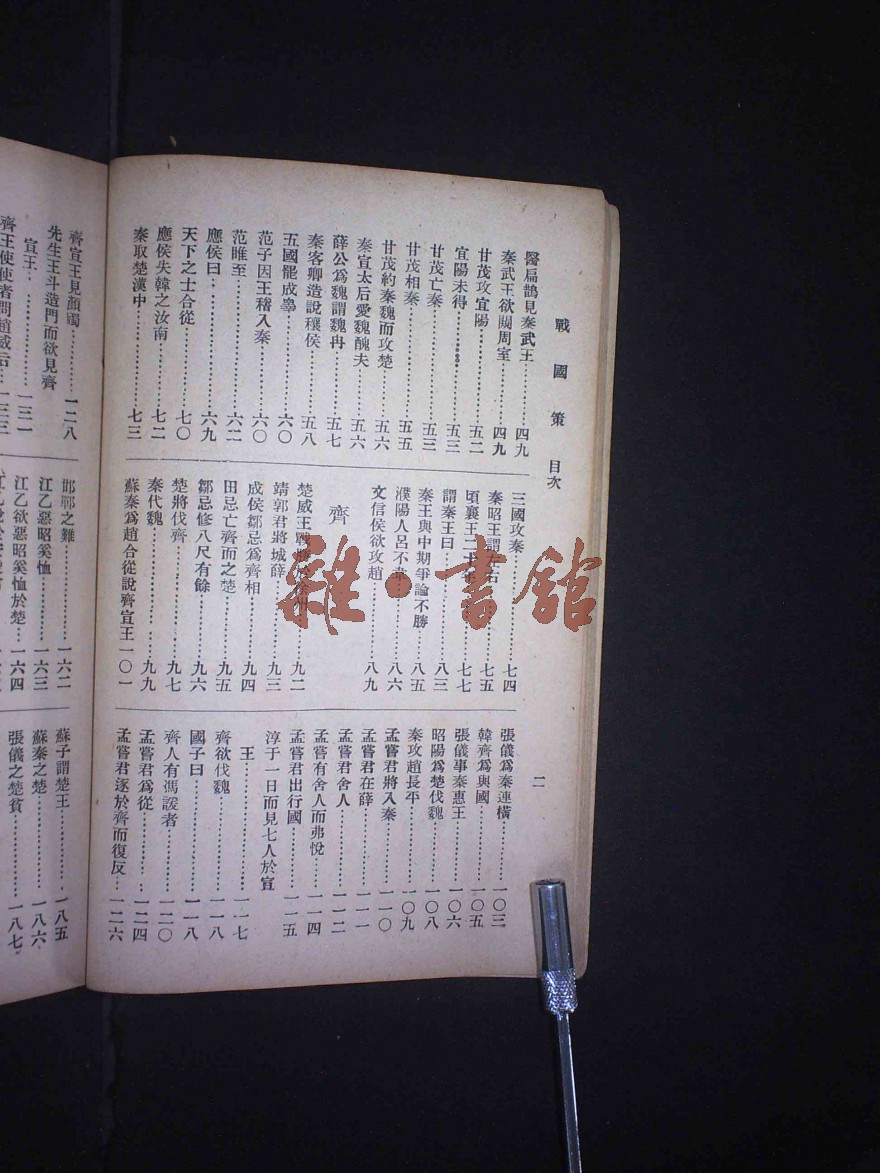 戰國策 目次
二
醫扁鵲見秦武王……四九
秦武王欲闚周室……四九
甘茂攻宜陽……五二
宜陽未得……五三
甘茂亡秦……五三
甘茂相秦……五五
甘茂約秦魏而攻楚……五六
秦宣太后愛魏醜夫……五六
薛公爲魏謂魏冉……五七
秦客卿造說穰侯……五八
五國罷成皋……六〇
范子因王稽入秦……六〇
范睢至……六二
應侯曰……六九
天下之士合從……七〇
應侯失韓之汝南……七二
秦取楚漢中……七三
三國攻秦……七四
秦昭王謂左右……七五
頃襄王二十年……七七
謂秦王曰……八三
秦王與中期爭論不勝……八五
濮陽人呂不韋……八六
文信侯欲攻趙……八九
齊
楚威王戰勝於徐州……九二
靖郭君將城薛……九三
成侯鄒忌爲齊相……九四
田忌亡齊而之楚……九五
鄒忌修八尺有餘……九六
楚將伐齊……九七
秦代魏……九九
蘇秦爲趙合從說齊宣王一〇一
張儀爲秦連橫……一〇三
韓齊爲與國……一〇五
張儀事秦惠王……一〇六
昭陽爲楚伐魏……一〇八
秦攻趙長平……一〇九
孟嘗君將入秦……一一〇
孟嘗君在薛……一一一
孟嘗君舍人……一一二
孟嘗有舍人而弗悅……一一四
孟嘗君出行國……一一五
淳于一日而見七人於宣
王……一一七
齊欲伐魏……一一八
國子曰……一一八
齊人有馮諼者……一二〇
孟嘗君爲從……一二四
孟嘗君逐於齊而復反……一二六
齊宣王見顏斶……一二八
先生王斗造門而欲見齊
宣王……一三一
齊王使使者問趙威后……一三三
邯鄲之難……一六二
江乙惡昭奚恤……一六三
江乙欲惡昭奚恤於楚……一六四
蘇子謂楚王……一八五
蘇秦之楚……一八六
張儀之楚貧……一八七
雜·書館